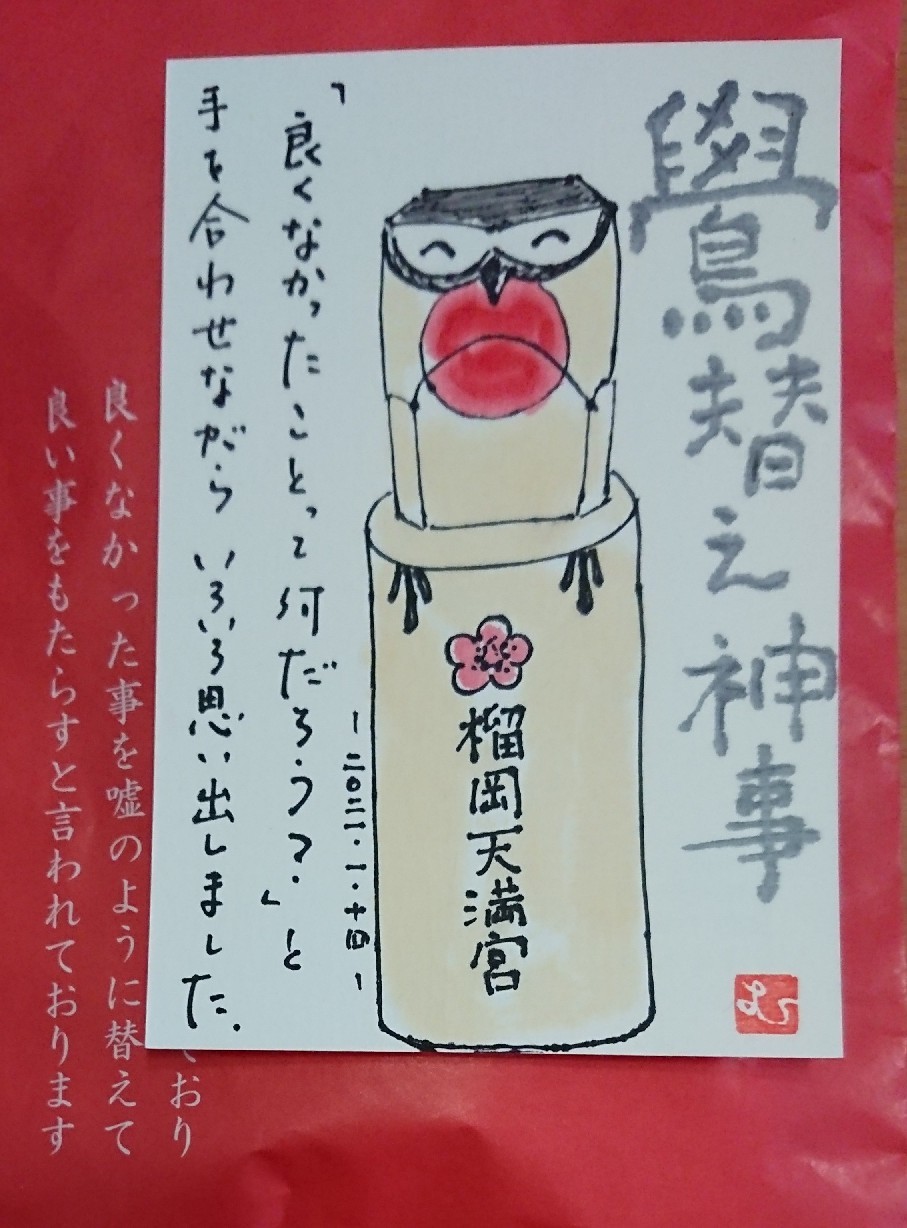 鷽替え神事
榴岡天満宮
ー二〇二一・一・十四ー
「良くなかったことって何だろう？」と
手を合わせながら いろいろ思い出しました.
おり
良くなかった事を嘘のように替えて
良い事をもたらすと言われております